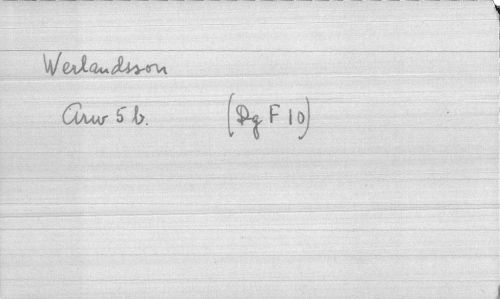 Werlandsson
Arw 5 b. (Dg F 10)